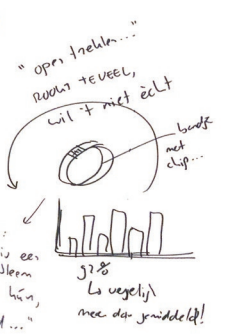 "open trekken..."
ROOKT TE VEEL,
wil 't niet echt
bandje
met
chip...
is een
hun,
92%
↳ vergelijk
meer dan gemiddeld!